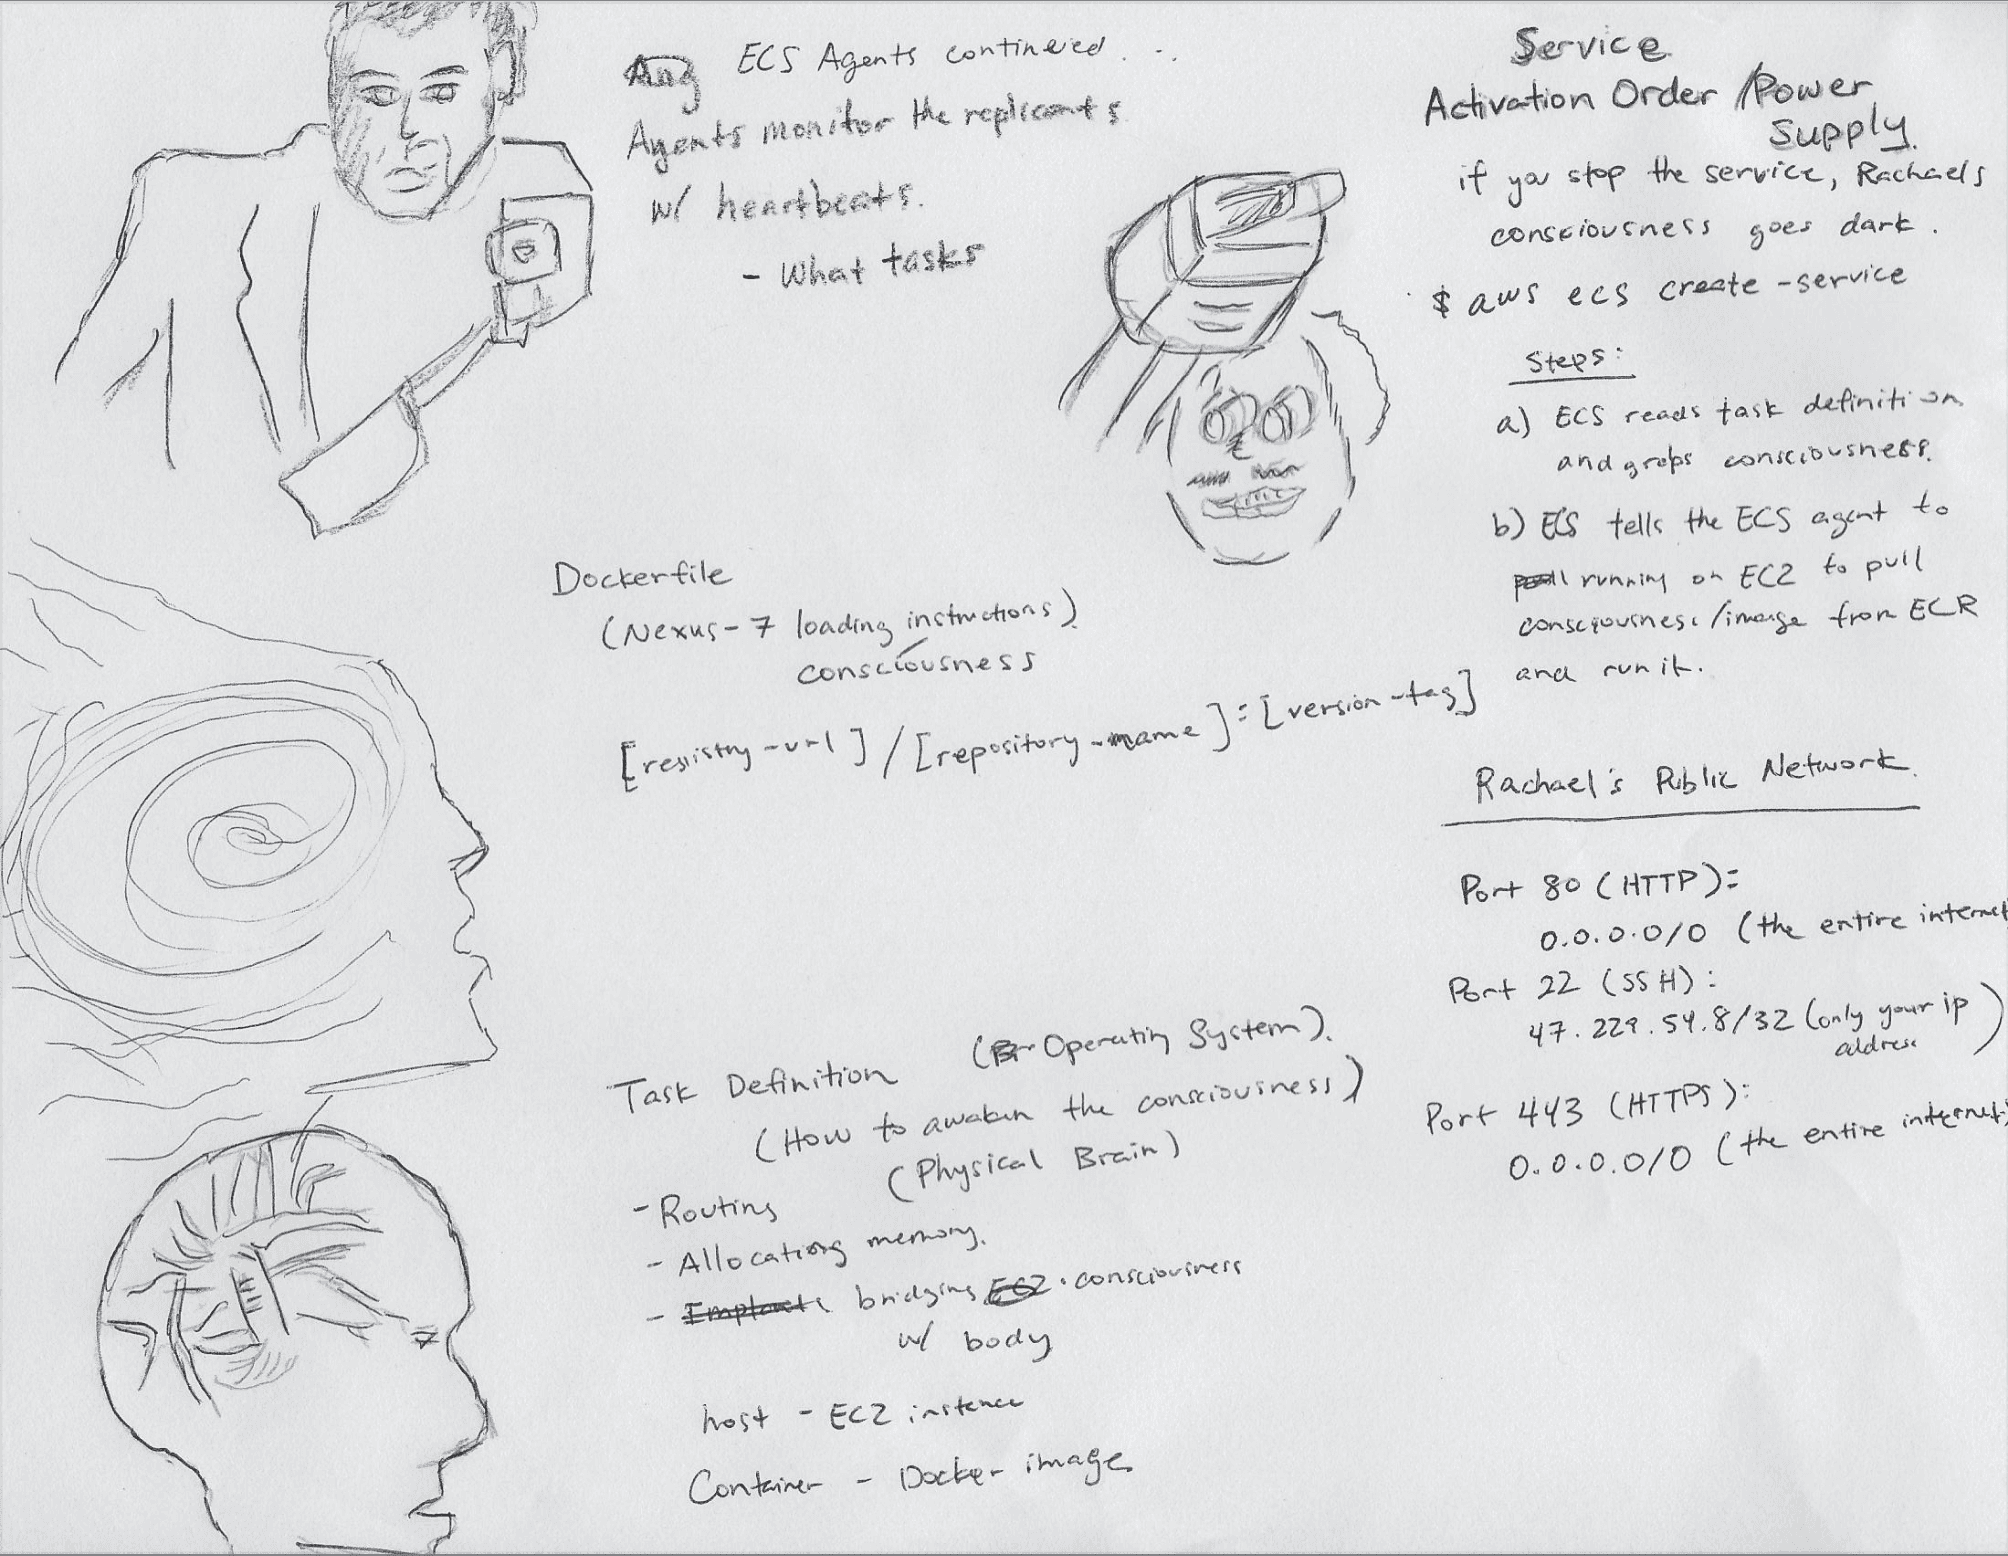 ECS Agents continued . .
Agents monitor the replicants
w/ heartbeats.
- What tasks
Dockerfile
(Nexus-7 loading instructions)
consciousness
[registry-url] / [repository-name]:[version-tag]
Task Definition (Operating System).
(How to awaken the consciousness)
(Physical Brain)
- Routing
- Allocating memory.
- bridging consciousness
w/ body
host - EC2 instance
Container - Docker image
Service
Activation Order / Power
Supply.
if you stop the service, Rachaels
consciousness goes dark.
$ aws ecs create-service
Steps:
a) ECS reads task definition
and grabs consciousness.
b) ECS tells the ECS agent to
running on EC2 to pull
consciousness/image from ECR
and run it.
Rachael's Public Network
Port 80 (HTTP):
0.0.0.0/0 (the entire internet
Port 22 (SSH):
47.229.54.8/32 (only your ip
address)
Port 443 (HTTPS):
0.0.0.0/0 (the entire internet)